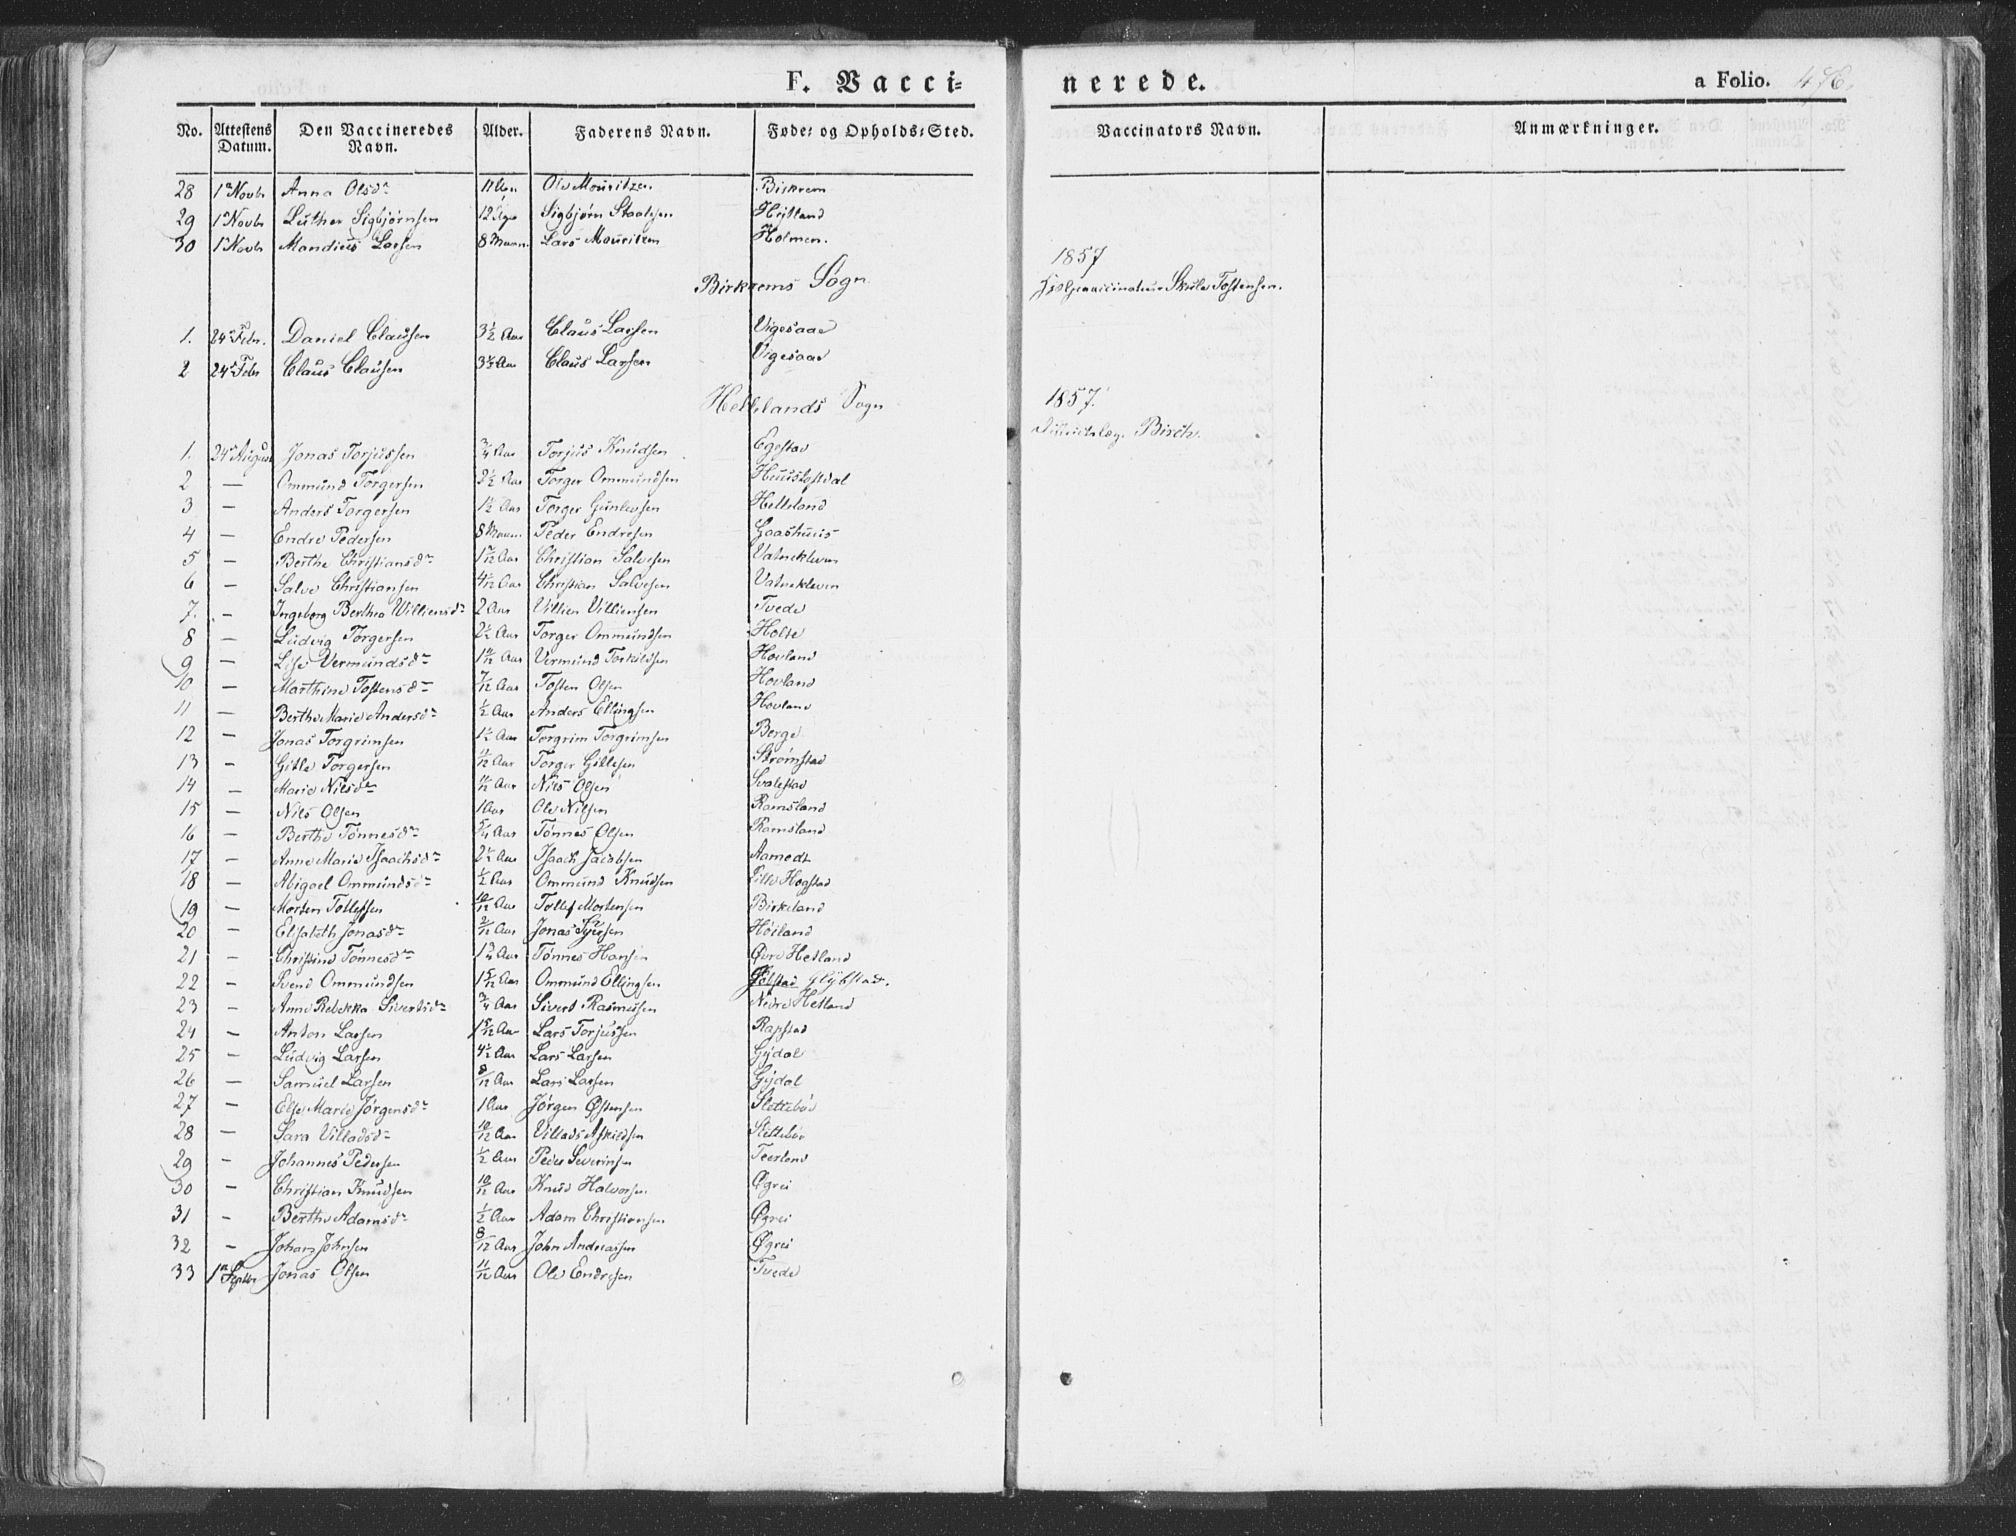 F. Vacci-
nerede.
a Folio. 476.
No. Attestens Datum. Den Vaccineredes Navn. Alder. Faderens Navn. Føde- og Opholds-Sted. Vaccinators Navn. Anmærkninger.
28 1ste Novbr Anna Olsdr 11 Aar Ole Mouritzen Birkrem
29 1ste Novbr Luther Sigbjørnsen 12 Sigbjørn Staalesen Hejtland
30 1ste Novbr Mandius Larsen 8 Maan. Lars Mouritzen Holmen.
Birkrems Sogn. 1857
Hjelpevaccinateur Skule Tostensen.
1. 24de Febr. Daniel Clausen 3½ Aar Claus Larsen Vigesaae
2 24de Febr Claus Clausen 3½ Aar Claus Larsen Vigesaae
Hellelands Sogn 1857.
Districtslæge Birch.
1. 24de August Jonas Torjussen ¾ Aar Torjus Knudsen Egestad
2 — Ommund Torgersen 2½ Aar Torger Ommundsen
3 — Anders Torgersen 1½ Aar Torger Gunlevsen Helleland
4 — Endre Pedersen 8 Maan. Peder Endresen Gaashuus
5 — Berthe Christiansdr Aar Christian Salvesen Vatnekleven
6 — Salve Christiansen 4/12 Aar Christian Salvesen Vatnekleven
7. — Ingeborg Berthea Williensdr 2 Aar Villien Villiensen Tvede
8 — Ludvig Torgersen 2½ Aar Torger Ommundsen Holte
9 — Lise Vermundsdr Aar Vermund Torkildsen Hovland
10 — Marthine Tostensdr 7/12 Aar Tosten Olsen Hovland
11 — Berthe Marie Andersdr ½ Aar Anders Ellingsen Hovland
12 — Jonas Torgrimsen 1½ Aar Torgrim Torgrimsen Berge
13 — Gitle Torgersen Aar Torger Gitlesen Strømstad
14 — Marie Nilsdr Aar Nils Olsen Svalestad
15 — Nils Olsen 1 Aar Ole Nilsen Ramsland
16 — Berthe Tønnesdr 5/4 Aar Tønnes Olsen Ramsland
17 — Anne Marie Isaachsdr 2½ Aar Isaach Jacobsen Aamodt
18 — Abigael Ommundsdr ½ Aar Ommund Knudsen Lille Hogstad
19 — Morten Tollefsen 10/12 Aar Tollef Mortensen Birkeland
20 — Elisabeth Jonasdr 2/12 Aar Jonas Høiland
21 — Christine Tønnesdr Aar Tønnes Hansen Øvre Hetland
22 — Svend Ommundsen 1 5/12 Aar Ommund Ellingsen Glybstad.
23 — Anne Rebekka Sivertsdr ¾ Aar Sivert Rasmussen Nedre Hetland
24 — Anton Larsen 1 5/12 Aar Lars Torjussen Rapstad
25 — Ludvig Larsen 4½ Aar Lars Larsen Gydal
26 — Samuel Larsen 8/12 Aar Lars Larsen Gydal
27 — Else Marie Jørgensdr 1 Aar Jørgen Østensen Slettebøe
28 — Sara Villadsdr 10/12 Aar Villads Askildsen Slettebøe
29 — Johannes Pedersen ½ Aar Peder Severinsen Teerland
30 — Christian Knudsen 10/12 Aar Knud Halvorsen Øgrei
31 — Berthe Adamsdr ½ Aar Adam Christiansen Øgrei
32 — Johan Johnsen 8/12 Aar John Andreassen Øgrei
33 1ste Septbr Jonas Olsen 11/12 Aar Ole Endresen Tvede